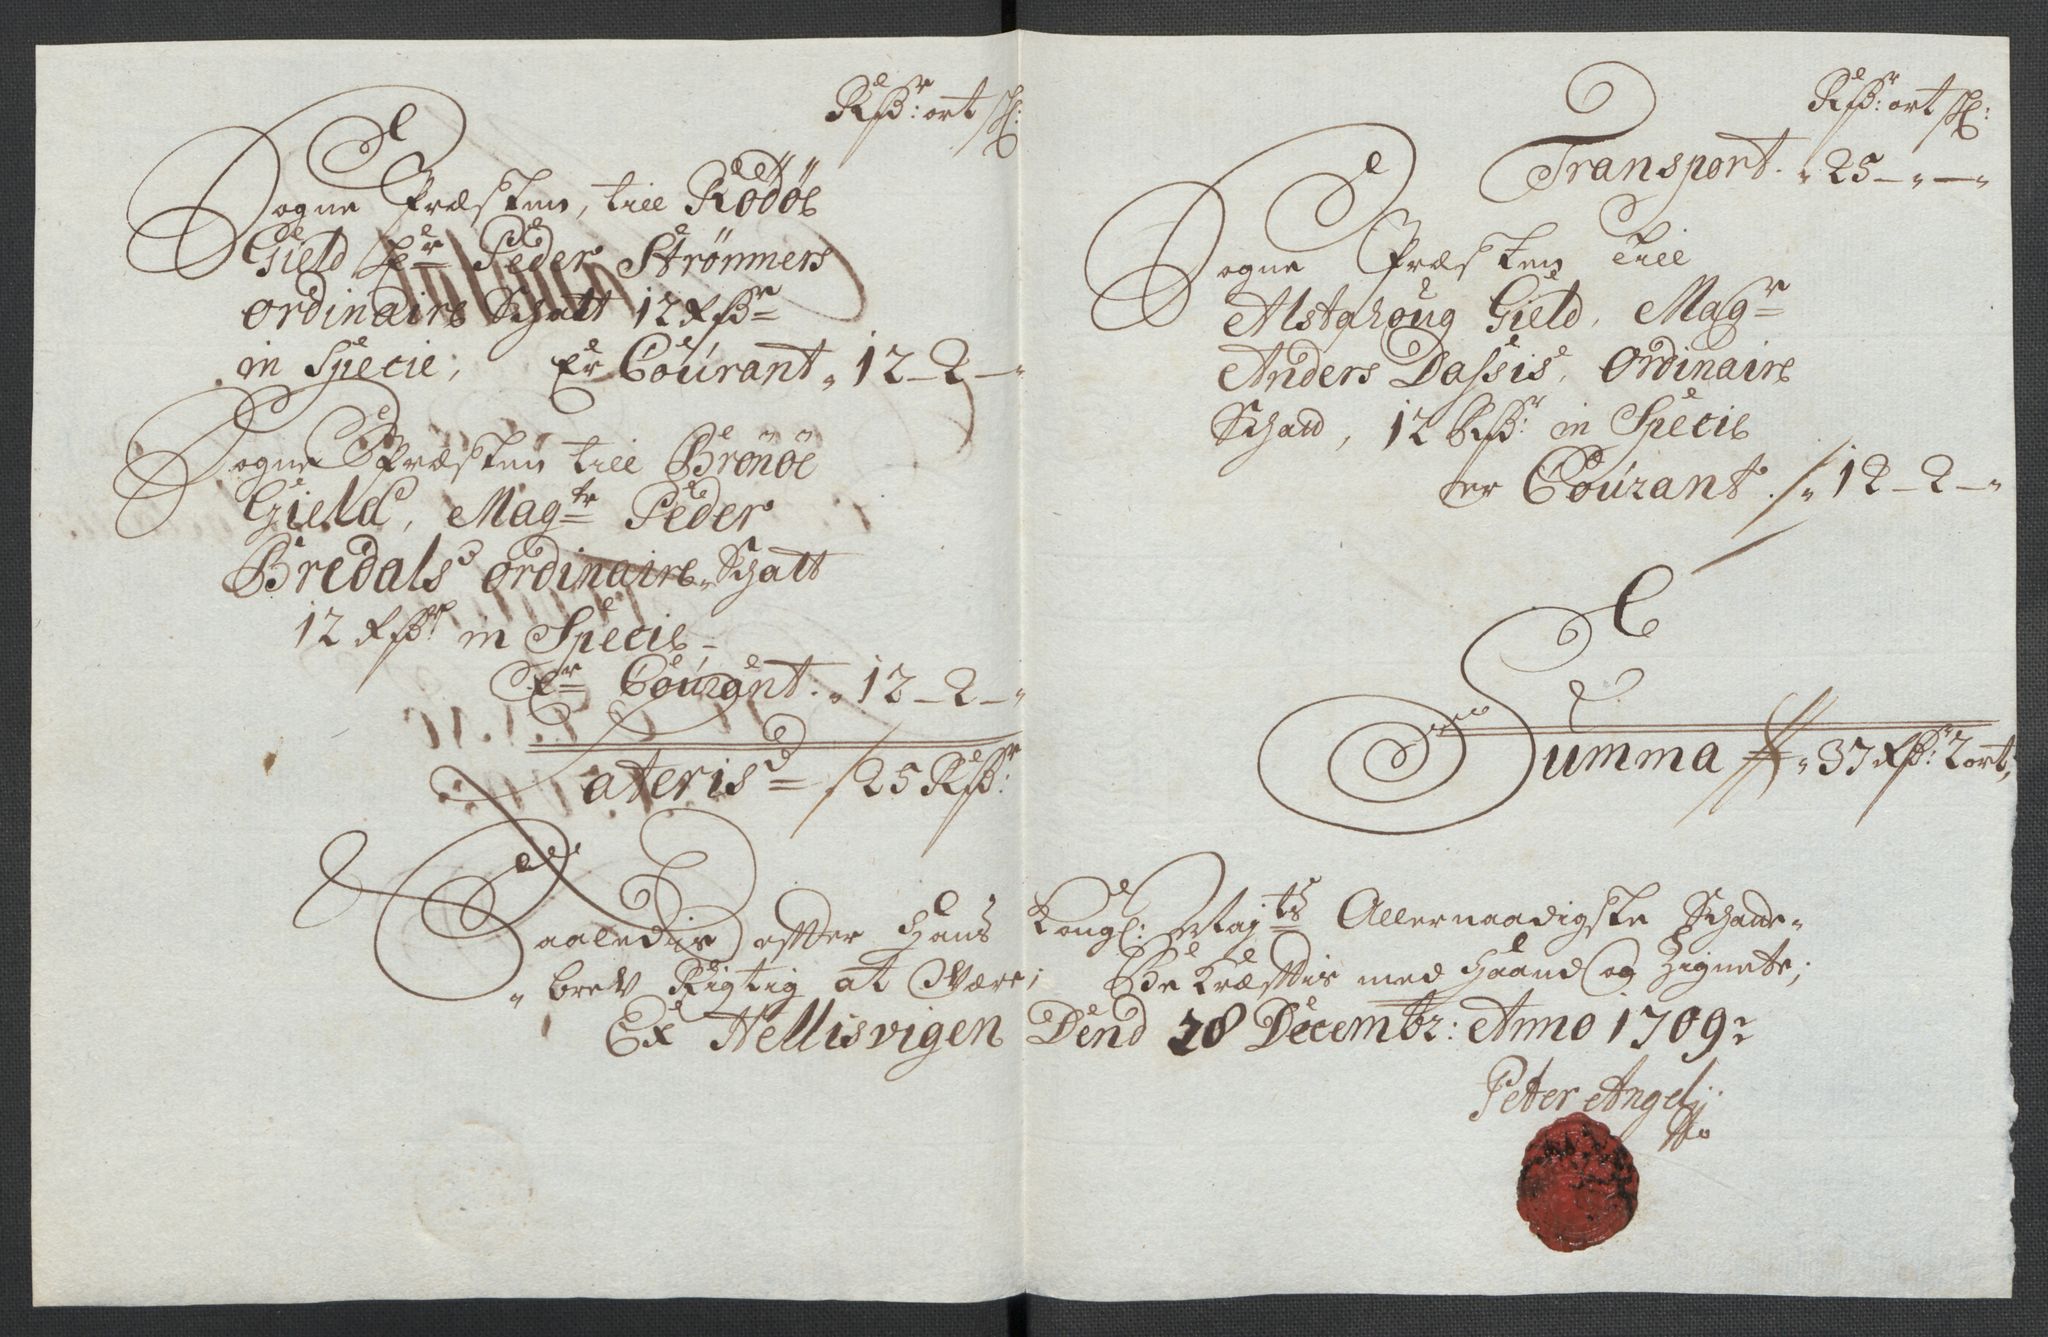 Rdr: ort sk:
Sogne Præsten, till Rödöe
Gield Hr Peder Strömmers
ordinaire Schatt 12 Rdr
in Specie; Er Courant „ 12 – 2 – „
Sogne Præsten till Brönöe
Gield, Magtr Peder
Bredals ordinaire Schatt
12 Rdr in Specie,
Er Courant. „ 12 – 2 – „
Lateris / 25 Rdr:
Rdr: ort sk:
Transport. „ 25 – „ – „
Sogne Præsten till
Alstahoug Gield, Magr
Anders Dassis, Ordinaire
Schatt, 12 Rdr: in Specie
er Courant. / „ 12 – 2 – „
Summa „ 37 Rdr: 2 ort,
Saaledis effter Hans Kongl: Mayts Allernaadigste Skatte-
„ brev Rigtig at Være; Bekræfftis med Haand og Zignete;
Ex Nellisvigen Dend 28 Decembr: Anno 1709
Peter Angel